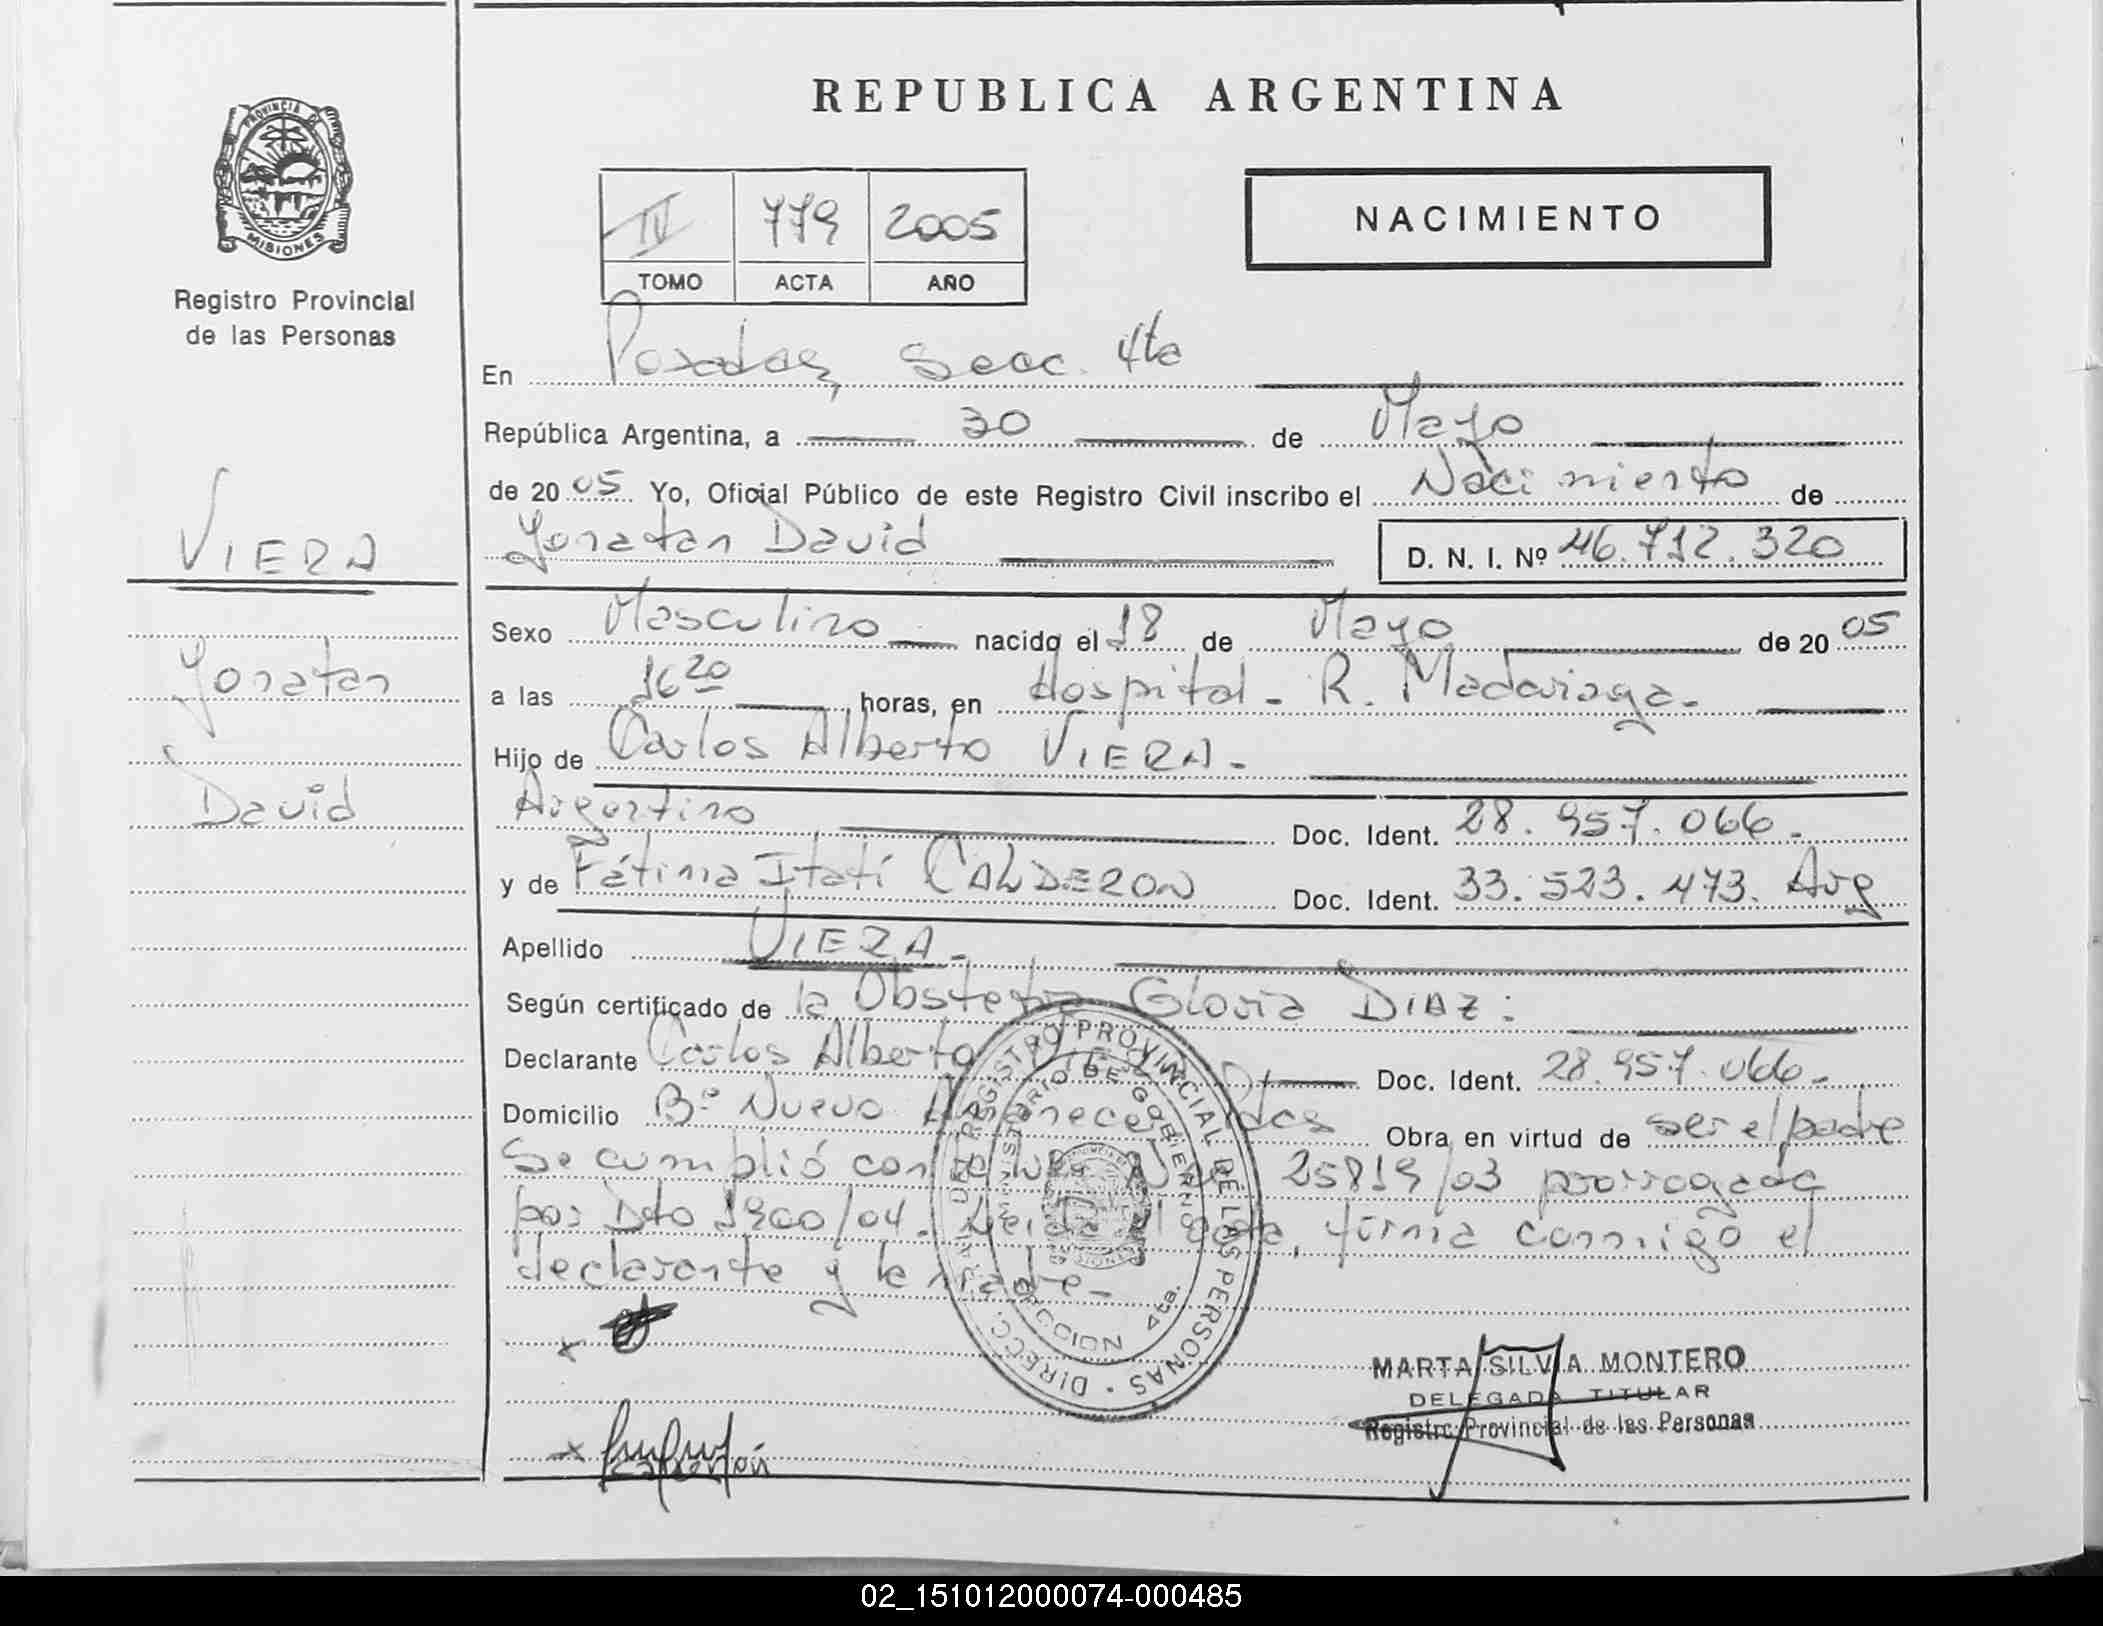 REPUBLICA ARGENTINA
PROVINCIA DE MISIONES
Registro Provincial
de las Personas
IV 779 2005
TOMO ACTA AÑO
NACIMIENTO
En Posadas, Secc. 4ta
República Argentina, a 30 de Mayo
de 2005 Yo, Oficial Público de este Registro Civil inscribo el Nacimiento de
Yonatan David D. N. I. Nº 46.712.320
VIERA
Yonatan
David
Sexo Masculino nacido el 18 de Mayo de 2005
a las 16 20 horas, en Hospital - R. Madariaga -
Hijo de Carlos Alberto VIERA -
Argentino Doc. Ident. 28.957.066 -
y de Fátima Itatí CALDERON Doc. Ident. 33.523.473. Arg
Apellido VIERA -
Según certificado de la Obstetra Gloria DIAZ:
Declarante Carlos Alberto VIERA Doc. Ident. 28.957.066 -
Domicilio Bº Nuevo Amanecer Pdas Obra en virtud de ser el padre
Se cumplió con 25819/03 prorrogada
por Dto 1900/04. Leída el acta, firma conmigo el
declarante y la madre -
DIRECC. GRAL. DEL REGISTRO PROVINCIAL DE LAS PERSONAS
MINISTERIO DE GOBIERNO
SECCION 4ta.
x
x Calderón
MARTA SILVIA MONTERO
DELEGADA TITULAR
Registro Provincial de las Personas
02_151012000074-000485